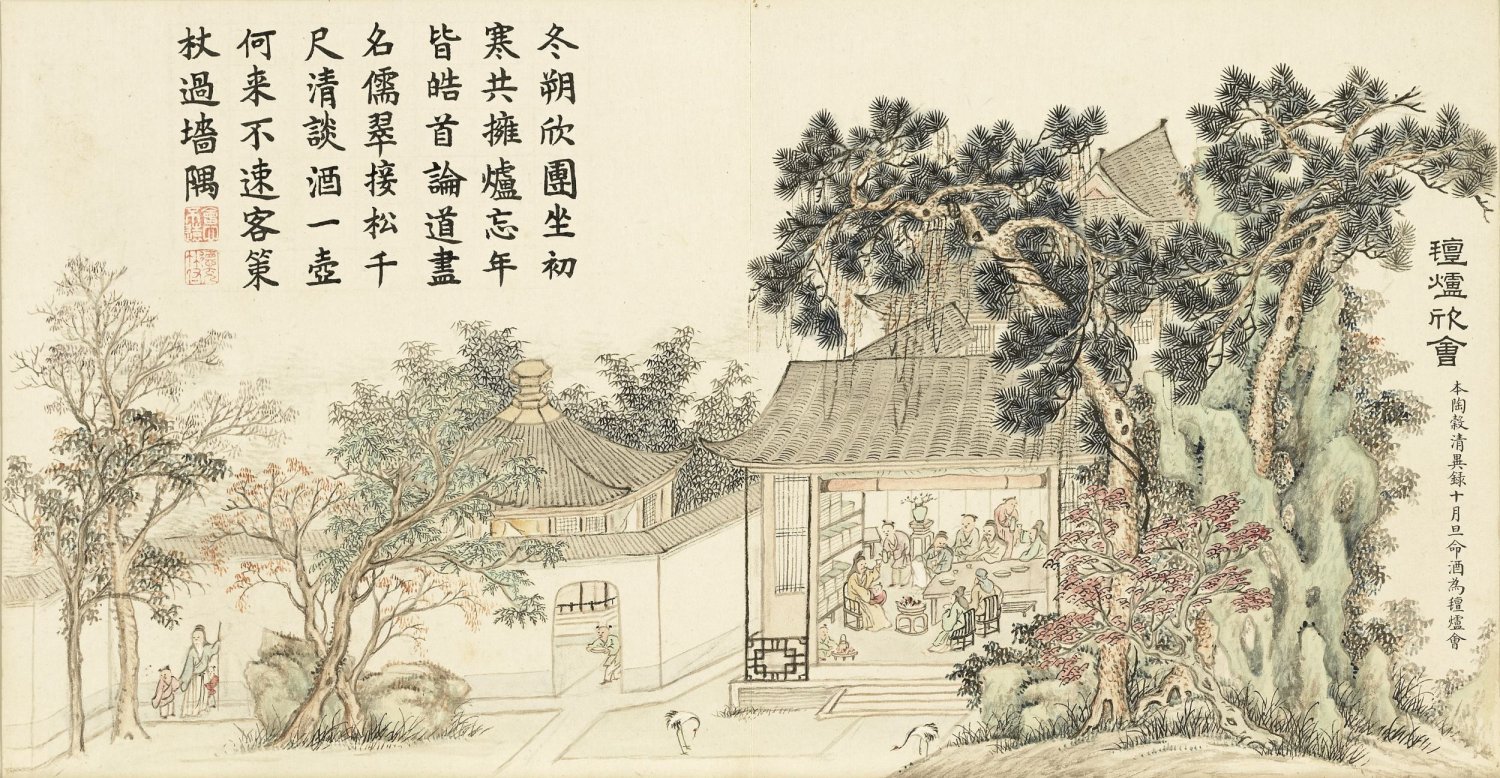 氊爐欣會
本陶穀清異録十月旦命酒為氊爐會
冬朔欣團坐初
寒共擁爐忘年
皆皓首論道盡
名儒翠接松千
尺清談酒一壺
何来不速客策
杖過墻隅